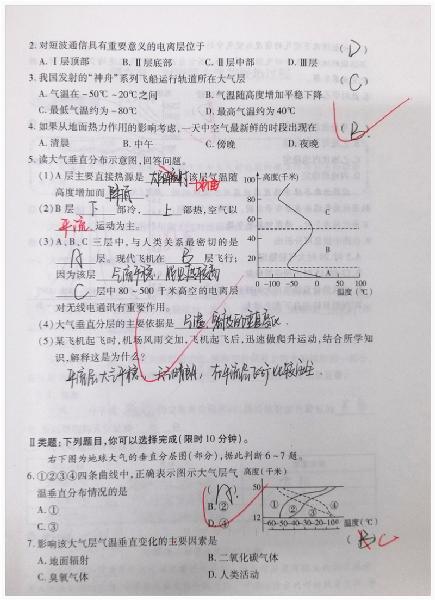 2. 对短波通信具有重要意义的电离层位于 (D)
A. Ⅰ层顶部 B. Ⅱ层底部 C. Ⅱ层中部 D. Ⅲ层
3. 我国发射的“神舟”系列飞船运行轨道所在大气层 (C)
A. 气温在-50℃~20℃之间 B. 气温随高度增加平稳下降
C. 最低气温约为-80℃ D. 最高气温约为40℃
4. 如果从地面热力作用的影响考虑,一天中空气最新鲜的时段出现在 (B)
A. 清晨 B. 中午 C. 傍晚 D. 夜晚
5. 读大气垂直分布示意图,回答问题。
(1)A层主要直接热源是 该层气温随 地面
高度增加而 降低 。
(2)B层 下 部冷, 上 部热,空气以
平流 运动为主。
(3)A、B、C三层中,与人类关系最密切的是
A 层。现代飞机在 B 层飞行;
因为该层
C 层中80~500千米高空的电离层
对无线电通讯有重要作用。
(4)大气垂直分层的主要依据是
(5)某飞机起飞时,机场风雨交加,飞机起飞后,迅速做爬升运动,结合所学知
识,解释这是为什么?
平流层大气平稳,天气晴朗,在平流层飞行比较安全.
高度(千米)
100
80
60
40
20
C
B
A
0 -100 -50 0 50 100
温度(℃)
Ⅱ类题:下列题目,你可以选择完成(限时10分钟)。
右下图为地球大气的垂直分层图(部分),据此判断6~7题。
6. ①②③④四条曲线中,正确表示图示大气层气
温垂直分布情况的是 (A)
A. ① B. ②
C. ③ D. ④
高度(千米)
50
12
① ② ③ ④
-60-50-40-30-20-10 0
温度(℃)
7. 影响该大气层气温垂直变化的主要因素是 (B) C
A. 地面辐射 B. 二氧化碳气体
C. 臭氧气体 D. 人类活动